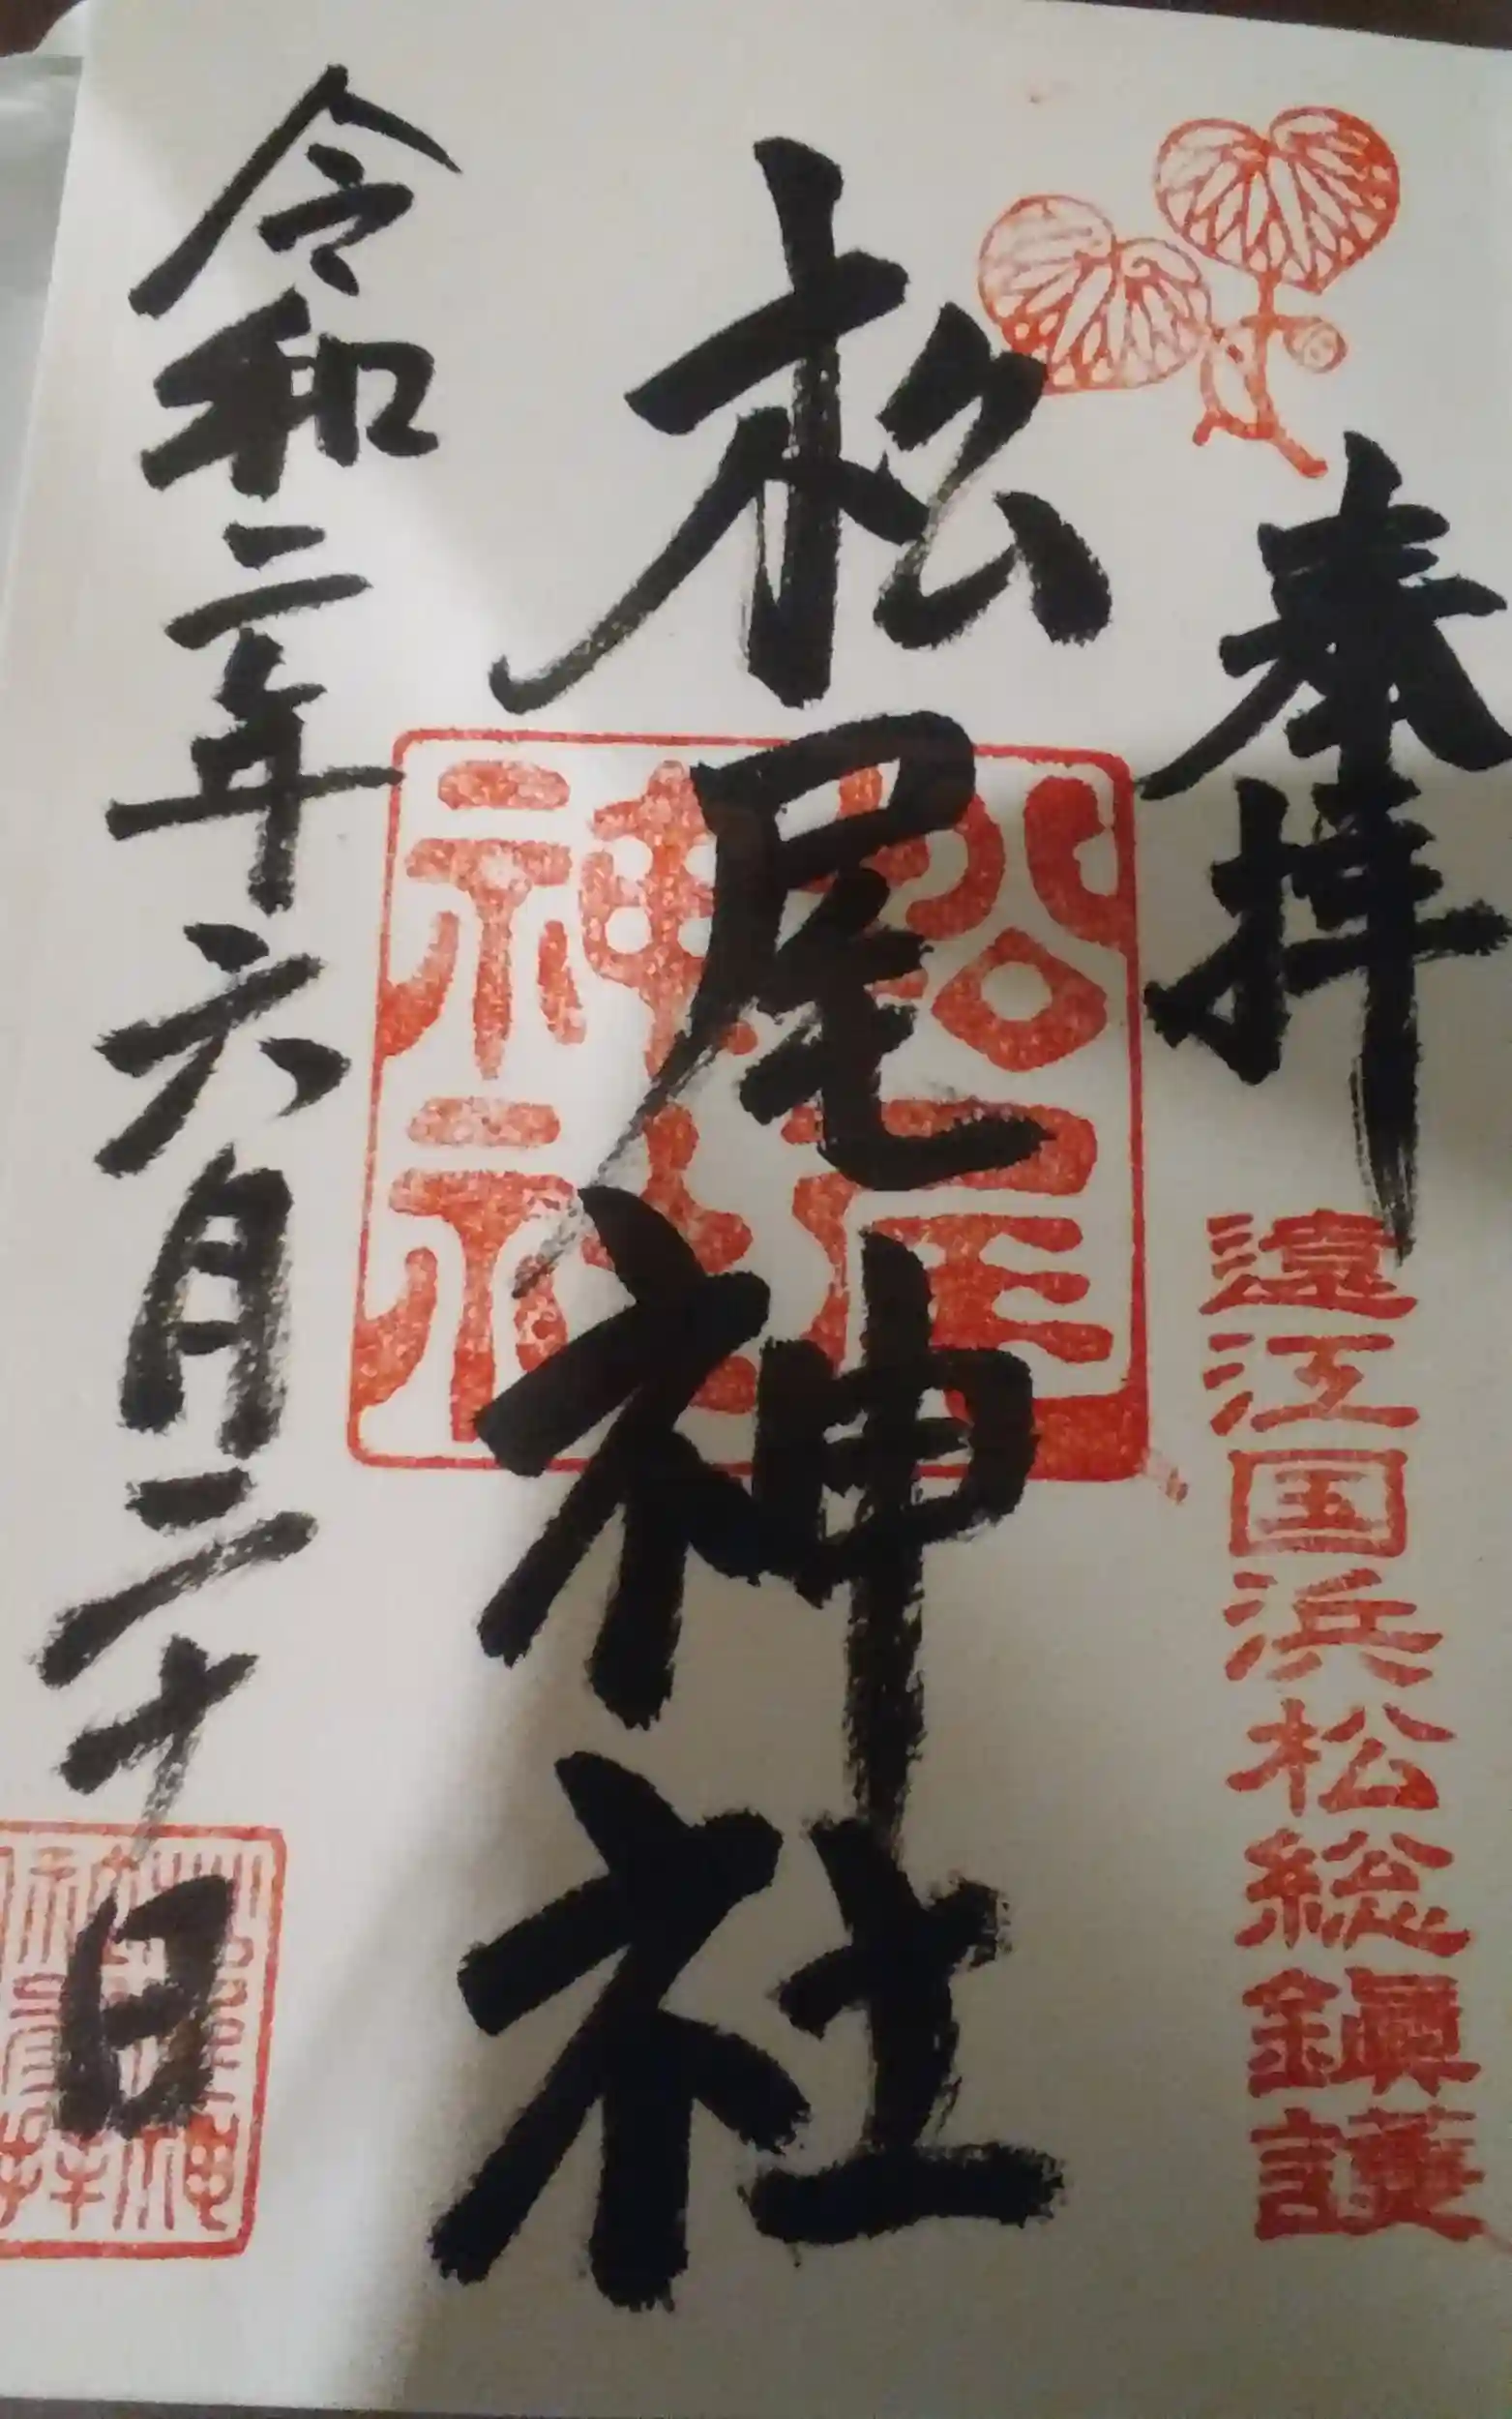 奉拝
遠江国浜松総鎮護
松尾神社
松尾神社
令和二年六月二十日